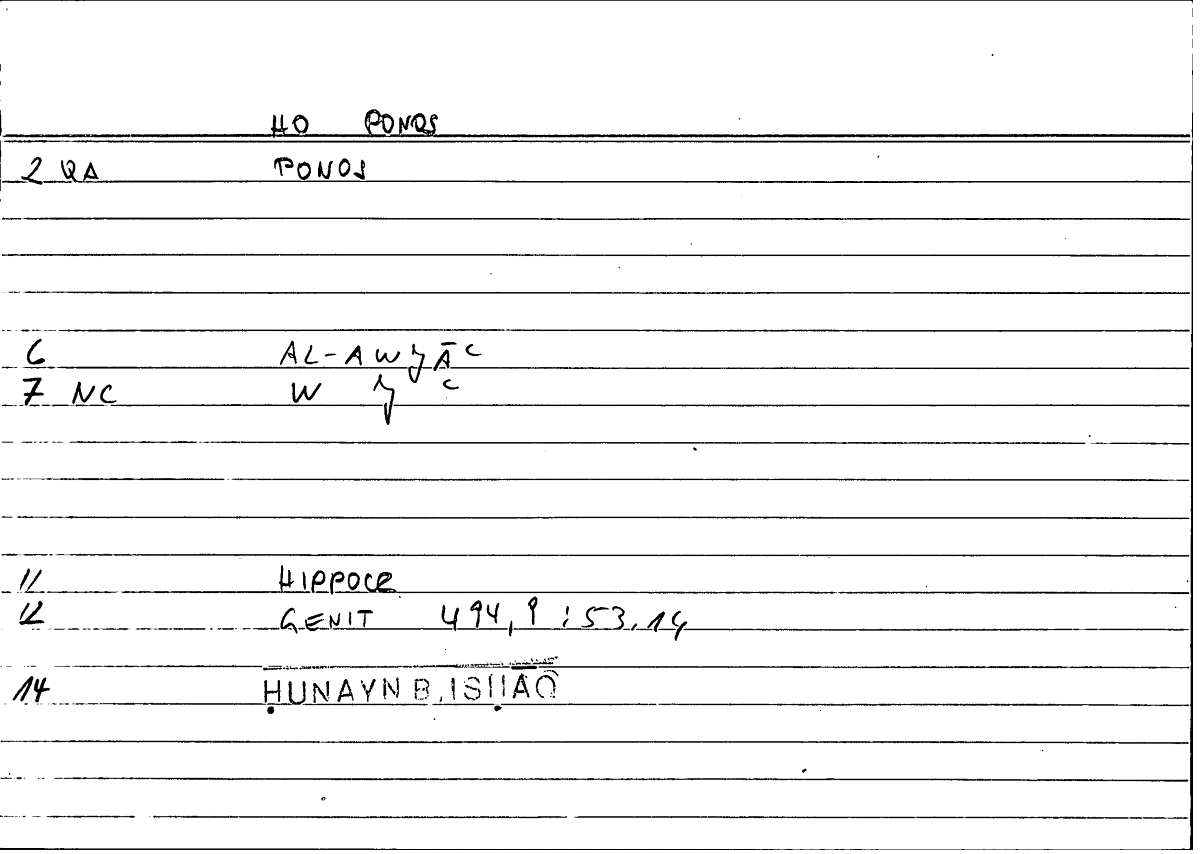 HO PONOS
2 QA PONOS
6 AL-AWǧĀC
7 NC W ǧ C
11 HIPPOCR
12 GENIT 494,9 : 53.14
14 ḤUNAYN B. ISḤĀQ